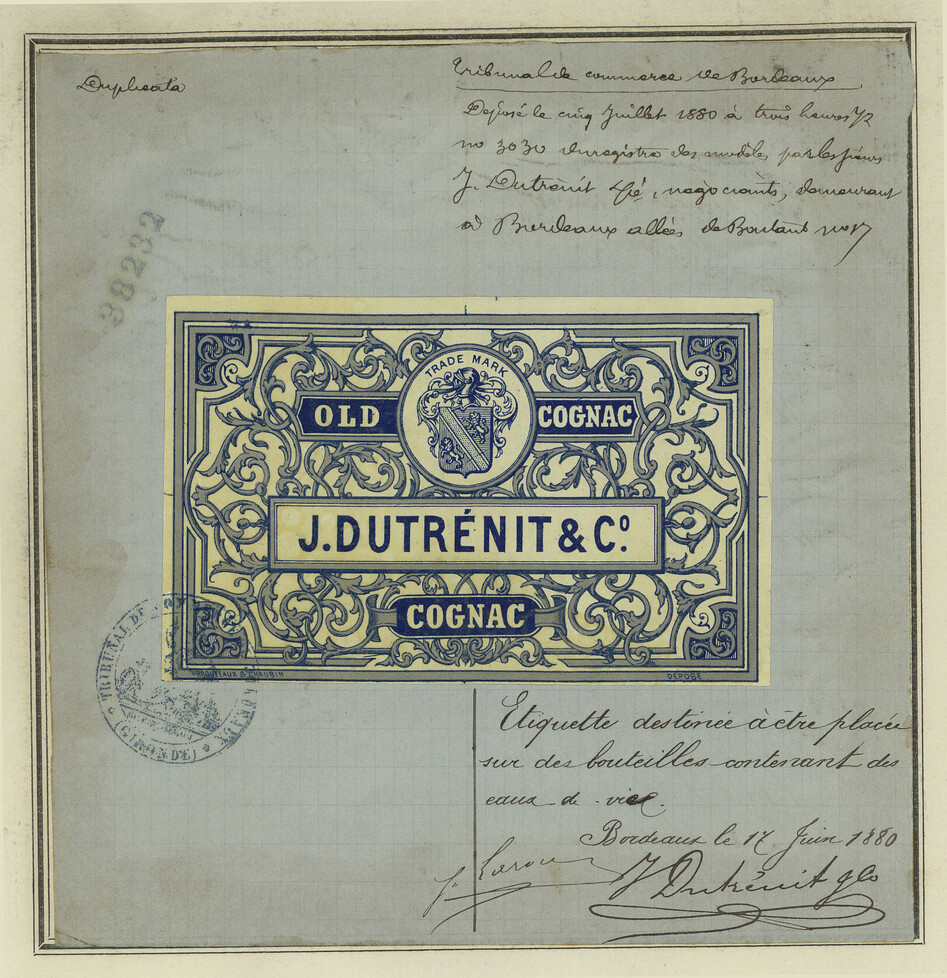 Duplicata
Tribunal de commerce de Bordeaux
Déposé le cinq Juillet 1880 à trois heures 1/2
no 3030 du registre des modèles, par les sieurs
J. Dutrénit & Cie, négociants, demeurant
à Bordeaux allées de Boutaut no 17
38232
TRADE MARK
OLD COGNAC
J. DUTRÉNIT & Cº.
COGNAC
& CHAUBIN
DEPOSÉ
TRIBUNAL DE COMMERCE
(GIRONDE)
Etiquette destinée à être placée
sur des bouteilles contenant des
eaux-de-vie.
Bordeaux le 17 Juin 1880
J Dutrénit & Co